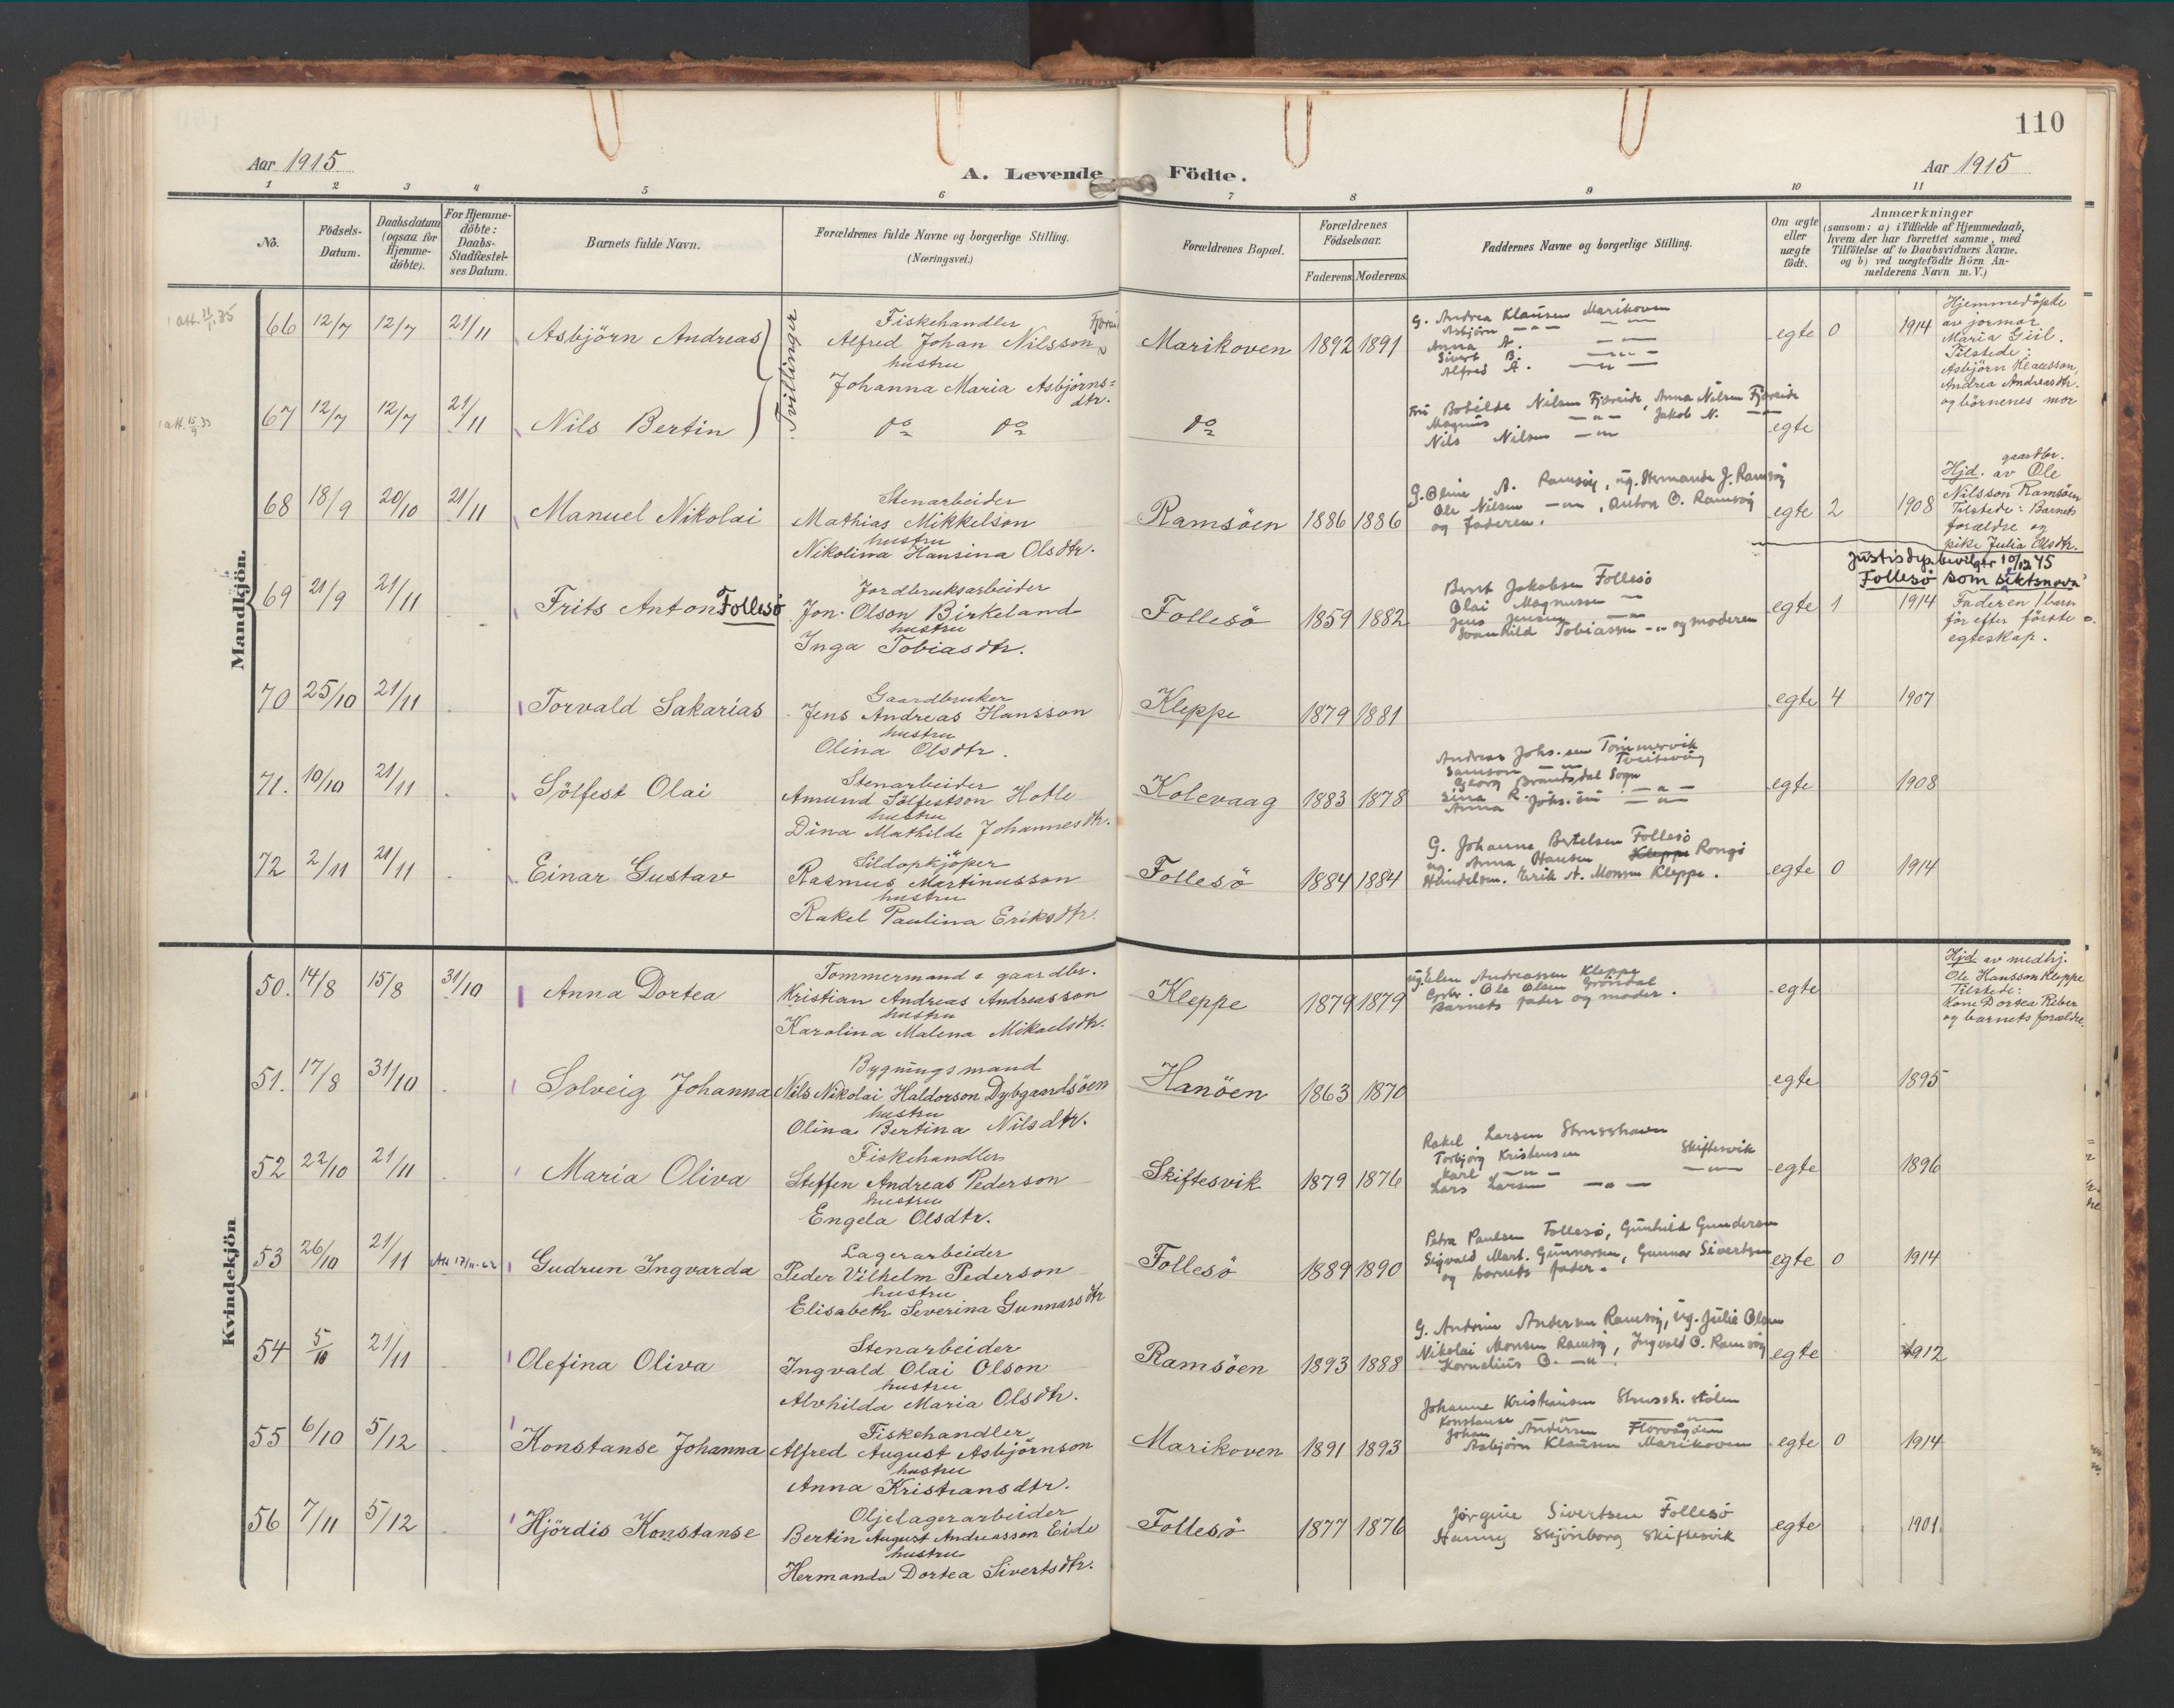 110
Aar 1915
A. Levende Födte.
Aar 1915
1 2 3 4 5 6 7 8 9 10 11
No.
Födsels-Datum.
Daabsdatum (ogsaa for Hjemme-döbte).
For Hjemme-döbte: Daabs-Stadfæstel-ses Datum.
Barnets fulde Navn.
Forældrenes fulde Navne og borgerlige Stilling. (Næringsvei.)
Forældrenes Bopæl.
Forældrenes Födselsaar.
Faderens Moderens
Faddernes Navne og borgerlige Stilling.
Om ægte eller uægte födt.
Anmærkninger
(saasom: a) i Tilfælde af Hjemmedaab,
hvem der har forrettet samme, med
Tilföielse af to Daabsvidners Navne.
og b) ved uægtefödte Börn An-
melderens Navn m.V.)
Mandkjön.
66 12/7 12/7 21/11 Asbjörn Andreas
Tvillinger
Fiskehandler
Alfred Johan Nilsson
hustru
Johanna Maria Asbjörns=
dtr.
Marikoven 1892 1891
G. Andrea Klausen Marikoven
Asbjörn — " —
Anna A.
Sivert B.
Alfred A.
egte 0 1914
Hjemmedöpte
av jormor
Maria Giil.
Tilstede:
Asbjörn Klausson,
Andrea Andreasdtr.
og börnenes mor
67 12/7 12/7 21/11 Nils Bertin
do do
do
Fru Botilde Nilsen Fjæreide, Anna Nilsen Fjæreide
Magnus — " — Jakob N. — " —
Nils Nilsen — " —
egte
68 18/9 20/10 21/11 Manuel Nikolai
Stenarbeider
Mathias Mikkelson
hustru
Nikolina Hansina Olsdtr.
Ramsöen 1886 1886
G. Oline A. Ramsöy, ug. Hermanda J. Ramsöy
Ole Nilsen — " —, Anton O. Ramsöy
og faderen.
egte 2 1908
gaardbr.
Hjd. av Ole
Nilsson Ramsöen
Tilstede: Barnets
forældre og
pike Julia Olsdtr.
69 21/9 21/11 Frits Anton Follesö
Jordbruksarbeider
Jon Olson Birkeland
hustru
Inga Tobiasdtr.
Follesö 1859 1882
Bernt Jakobsen Follesö
Olai Magnussen — " —
Jens Jensen — " —
Svanhild Tobiassen — " — og moderen
egte 1 1914
Justisdep. bevilgtr 10/12 45
Follesö som slektsnavn
Faderen 1 barn
för efter förste
egteskap.
70 25/10 21/11 Torvald Sakarias
Gaardbruker
Jens Andreas Hansson
hustru
Olina Olsdtr.
Kleppe 1879 1881
egte 4 1907
71. 10/10 21/11 Sölfest Olai
Stenarbeider
Amund Sölfestson Hotle
hustru
Dina Mathilde Johannesdtr.
Kolevaag 1883 1878
Andreas Johs.sen Tömmervik
Samson — " — Tveitevåg
Georg Brandsdal Sogn
Sina R. — " —
Anna Johs.sen — " —
egte 1908
72 2/11 21/11 Einar Gustav
Sildopkjöper
Rasmus Martinusson
hustru
Rakel Paulina Eriksdtr.
Follesö 1884 1884
G. Johanna Bertelsen Follesö
ug. Anna Hansen Kleppe Rongö
Handelsm. Erik A. Monsen Kleppe.
egte 0 1914
Kvindekjön
50. 14/8 15/8 31/10 Anna Dortea
Tömmermand & gaardbr.
Kristian Andreas Andreasson
hustru
Karolina Malena Mikaelsdtr.
Kleppe 1879 1879
ug. Elen Andreassen Kleppe
Grbr. Ole Olsen Gröndal
Barnets fader og moder.
egte
Hjd. av medhj.
Ole Hansson Kleppe
Tilstede:
Kone Dortea Reber
og barnets forældre.
51. 17/8 31/10 Solveig Johanna
Bygningsmand
Nils Nikolai Haldorson Dybgaardsöen
hustru
Olina Bertina Nilsdtr.
Hanöen 1863 1870
egte 1895
52 22/10 21/11 Maria Oliva
Fiskehandler
Steffen Andreas Pederson
hustru
Engela Olsdtr.
Skiftesvik 1879 1876
Rakel Larsen Strusshavn
Torbjörg Kristensen Skiftesvik
Karl — " — — " —
Lars Larsen — " —
egte 1896
53 26/10 21/11 Att 17/11-62 Gudrun Ingvarda
Lagerarbeider
Peder Vilhelm Pederson
hustru
Elisabeth Severina Gunnarsdtr
Follesö 1889 1890
Petra Paulsen Follesö, Gunhild Gundersen
Sigvald Mart. Gunnarsen, Gunnar Sivertsen
og barnets fader.
egte 0 1914
54 5/10 21/11 Olefina Oliva
Stenarbeider
Ingvald Olai Olson
hustru
Alvhilda Maria Olsdtr.
Ramsöen 1893 1888
G. Andrine Andersen Ramsöy, ug. Julie Olsen
Nikolai Monsen Ramsöy, Ingvald O. Ramsöy
Kornelius O. — " —.
egte 1912
55 6/10 5/12 Konstanse Johanna
Fiskehandler
Alfred August Asbjörnson
hustru
Anna Kristiansdtr.
Marikoven 1891 1893
Johanne Kristiansen Strussh. stölen
Konstanse — " — — " —
Johan Andersen Florvågöen
Asbjörn Klausen Marikoven
egte 0 1914
56 7/11 5/12 Hjördis Konstanse
Oljelagerarbeider
Bertin August Andreasson Eide
hustru
Hermanda Dortea Sivertsdtr.
Follesö 1877 1876
Jörgine Sivertsen Follesö
Hanny Skjönborg Skiftesvik
egte 1901